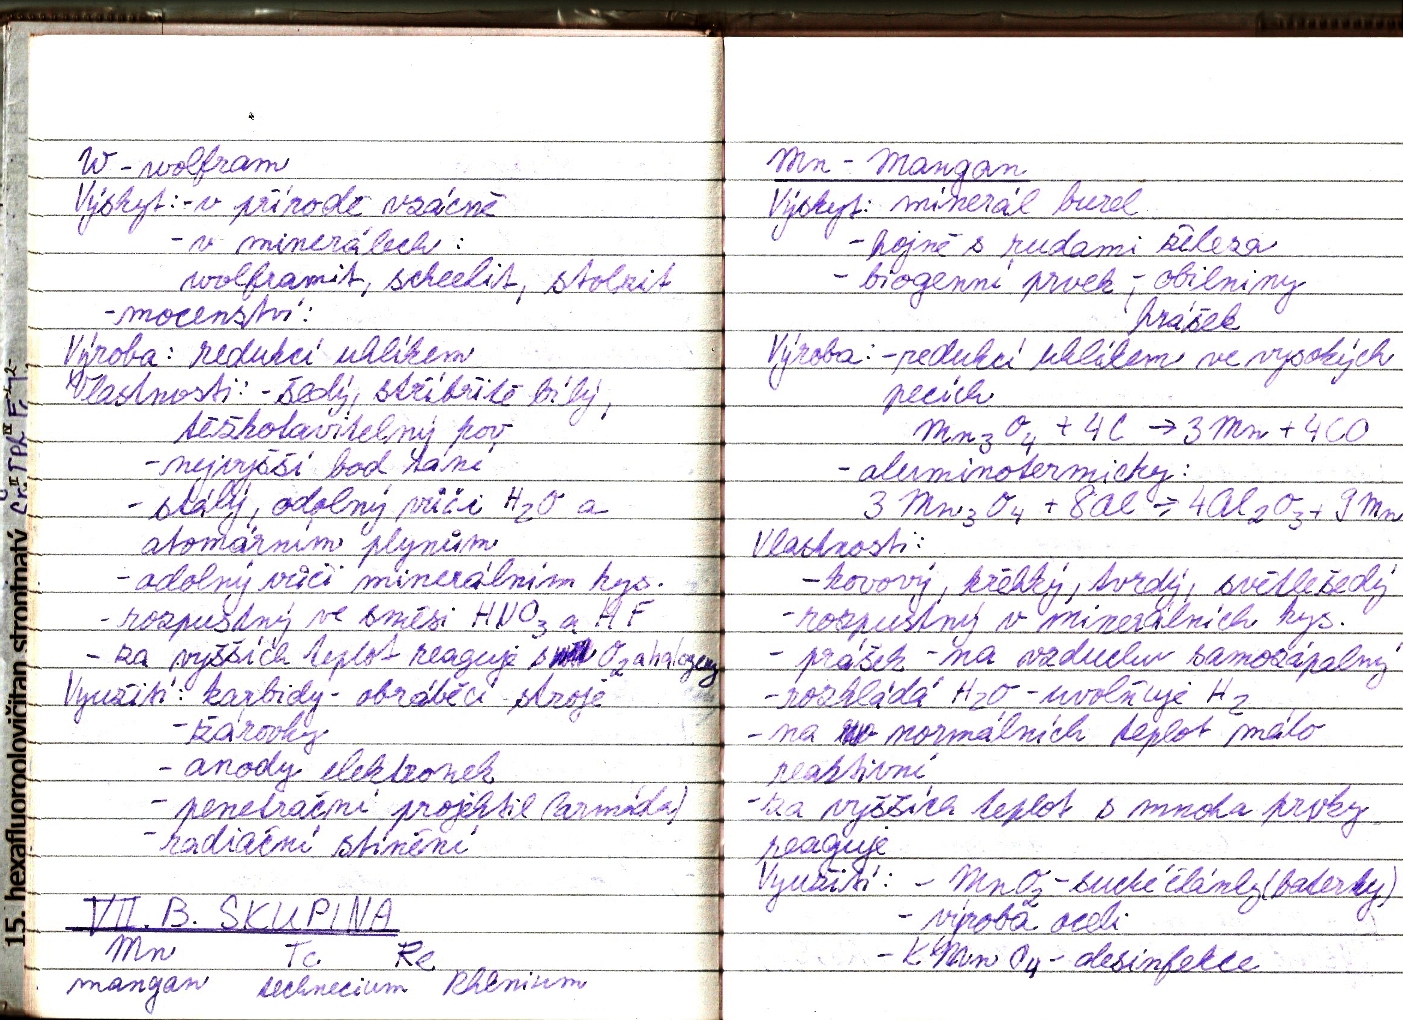 W - wolfram
Výskyt: - v přírodě vzácně
- v minerálech:
wolframit, scheelit, stolzit
- mocenství:
Výroba: redukcí uhlíkem
Vlastnosti: - šedý, stříbřitě bílý,
těžkotavitelný kov
- nejvyšší bod tání
- stálý, odolný vůči H₂O a
atomárním plynům
- odolný vůči minerálním kys.
- rozpustný ve směsi HNO₃ a HF
- za vyšších teplot reaguje s O₂ a halogeny
Využití: karbidy - obráběcí stroje
- žárovky
- anody elektronek
- penetrační projektil (armáda)
- radiační stínění
VII. B. SKUPINA
Mn Tc Re
mangan technecium Rhenium
Mn - Mangan
Výskyt: minerál burel
- hojně s rudami železa
- biogenní prvek, obilniny
hrášek
Výroba: - redukcí uhlíkem ve vysokých
pecích
Mn₃O₄ + 4C → 3Mn + 4CO
- aluminotermicky:
3Mn₃O₄ + 8Al → 4Al₂O₃ + 9Mn
Vlastnosti:
- kovový, křehký, tvrdý, světlešedý
- rozpustný v minerálních kys.
- prášek - na vzduchu samozápalný
- rozkládá H₂O - uvolňuje H₂
- na normálních teplot málo
reaktivní
- za vyšších teplot s mnoha prvky
reaguje
Využití: - MnO₂ - suché články (baterky)
- výroba oceli
- KMnO₄ - desinfekce
15. hexafluoroolovičitan strontnatý